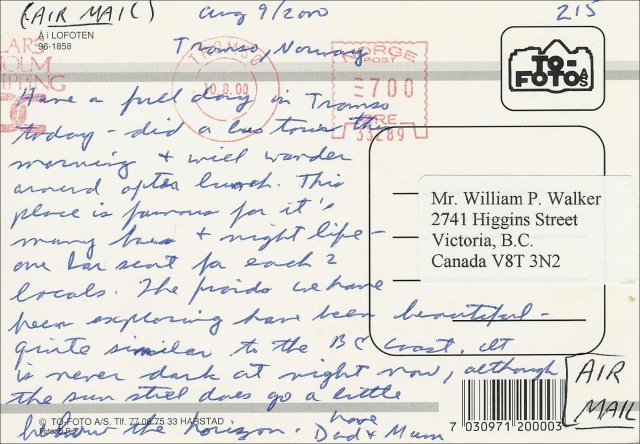 (AIR MAIL)
Aug 9/2000
215
Å i LOFOTEN
96-1858
Tromso, Norway
TROMSØ
10.8.00
NORGE
POST
700
ØRE
33289
TO-
FOTO A/S
Have a full day in Tromso
today - did a bus tour the
morning + will wander
around after lunch. This
place is famous for it's
many bars + night life -
one bar seat for each 2
locals. The fiords we have
been exploring have been beautiful -
quite similar to the BC Coast. It
is never dark at night now, although
the sun still does go a little
below the horizon.
love
Dad + Mum
Mr. William P. Walker
2741 Higgins Street
Victoria, B.C.
Canada V8T 3N2
AIR
MAIL
© TO-FOTO A/S. Tlf. 77 06 75 33 HARSTAD
7 030971 200003